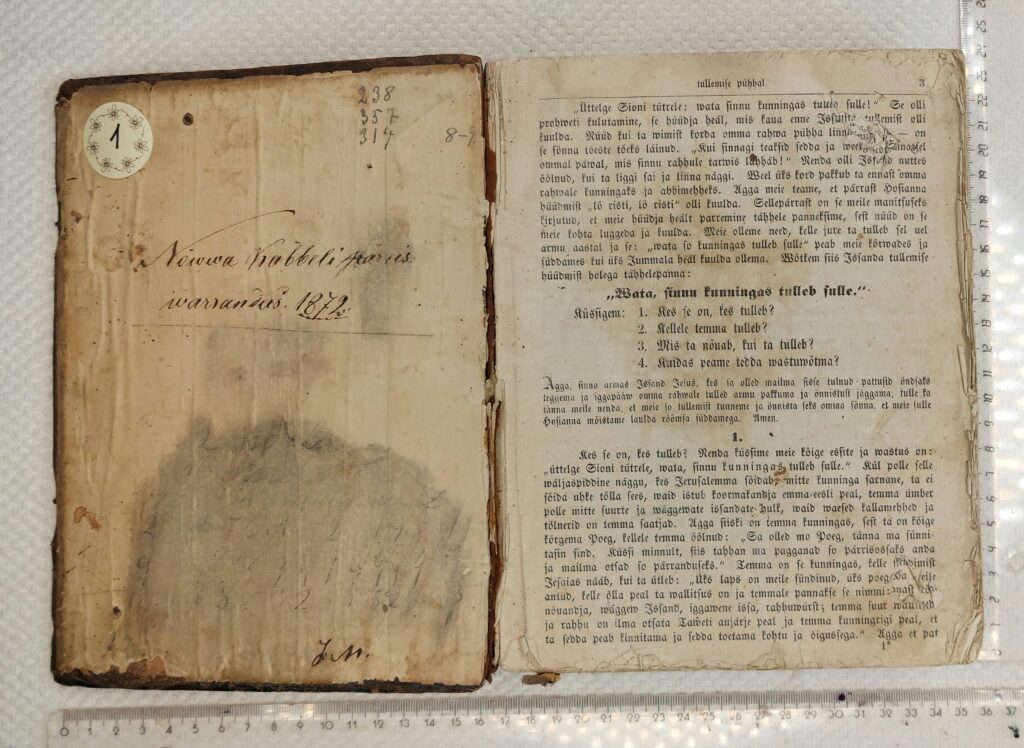 1
238
357
314
8-9
Nöwwa Kabbeli päris
warrandus. 1872.
J. M.
tullemise pühhal.
3
„Üttelge Sioni tütrele: wata sinnu kunningas tulleb sulle!“ Se olli
prohweti kulutamine, se hüüdja heäl, mis kaua enne Issanda tullemist olli
kuulda. Nüüd kui ta wimist korda omma rahwa pühha linna — on
se sõnna tõeste tõeks läinud. „Kui sinnagi teaksid sedda ja weel sinnasel
ommal päwal, mis sinnu rahhule tarwis lähhäb!“ Nenda olli Issand nuttes
öölnud, kui ta liggi sai ja linna näggi. Weel üks kord pakkub ta ennast omma
rahwale kunningaks ja abbimehheks. Agga meie teame, et pärrast Hosianna
hüüdmist „lö risti, lö risti“ olli kuulda. Sellepärrast on se meile manitsuseks
kirjutud, et meie hüüdja heält parremine tähhele panneksime, sest nüüd on se
meie kohta luggeda ja kuulda. Meie olleme need, kelle jure ta tulleb sel uel
armu aastal ja se: „wata so kunningas tulleb sulle“ peab meie kõrwades ja
süddames kui üks Jummala heäl kuulda ollema. Wõtkem siis Issanda tullemise
hüüdmist holega tähhelepanna:
„Wata, sinnu kunningas tulleb sulle.“
Küssigem: 1. Kes se on, kes tulleb?
2. Kellele temma tulleb?
3. Mis ta nõuab, kui ta tulleb?
4. Kuidas peame tedda wastuwõtma?
Agga, sinna armas Issand Jesus, kes sa olled mailma sisse tulnud pattusid õndsaks
teggema ja iggapääw omma rahwale tulled armu pakkuma ja önnistust jäggama, tulle ka
tänna meile nenda, et meie so tullemist tunneme ja önnista seks omma sõnna, et meie sulle
Hosianna mõistame laulda röömsa süddamega. Amen.
1.
Kes se on, kes tulleb? Nenda küssime meie kõige essite ja wastus on:
„üttelge Sioni tütrele, wata, sinnu kunningas tulleb sulle.“ Kül polle selle
wäljaspiddine näggu, kes Jerusalemma sõidab, mitte kunninga sarnane, ta ei
sõida uhke tõlla sees, waid istub koormakandja emma-eesli peal, temma ümber
polle mitte suurte ja wäggewate issandate hulk, waid waesed kallamehhed ja
tölnerid on temma saatjad. Agga siiski on temma kunningas, sest ta on kõige
kõrgema Poeg, kellele temma öölnud: „Sa olled mo Poeg, tänna ma sünni-
tasin sind. Küssi minnult, siis tahhan ma pagganad so pärrisossaks anda
ja mailma otsad so pärranduseks.“ Temma on se kunningas, kelle sündimist
Jesaias nääb, kui ta ütleb: „Üks laps on meile sündinud, üks poeg on meile
antud, kelle õlla peal ta wallitsus on ja temmale pannakse se nimmi:
nõuandja, wäggew Issand, iggawene issa, rahhuwürst; temma suur
ja rahhu on ilma otsata Taweti aujärje peal ja temma kunningrigi peal, et
ta sedda peab kinnitama ja sedda toetama kohtu ja õigussega.“ Agga et pat
1*